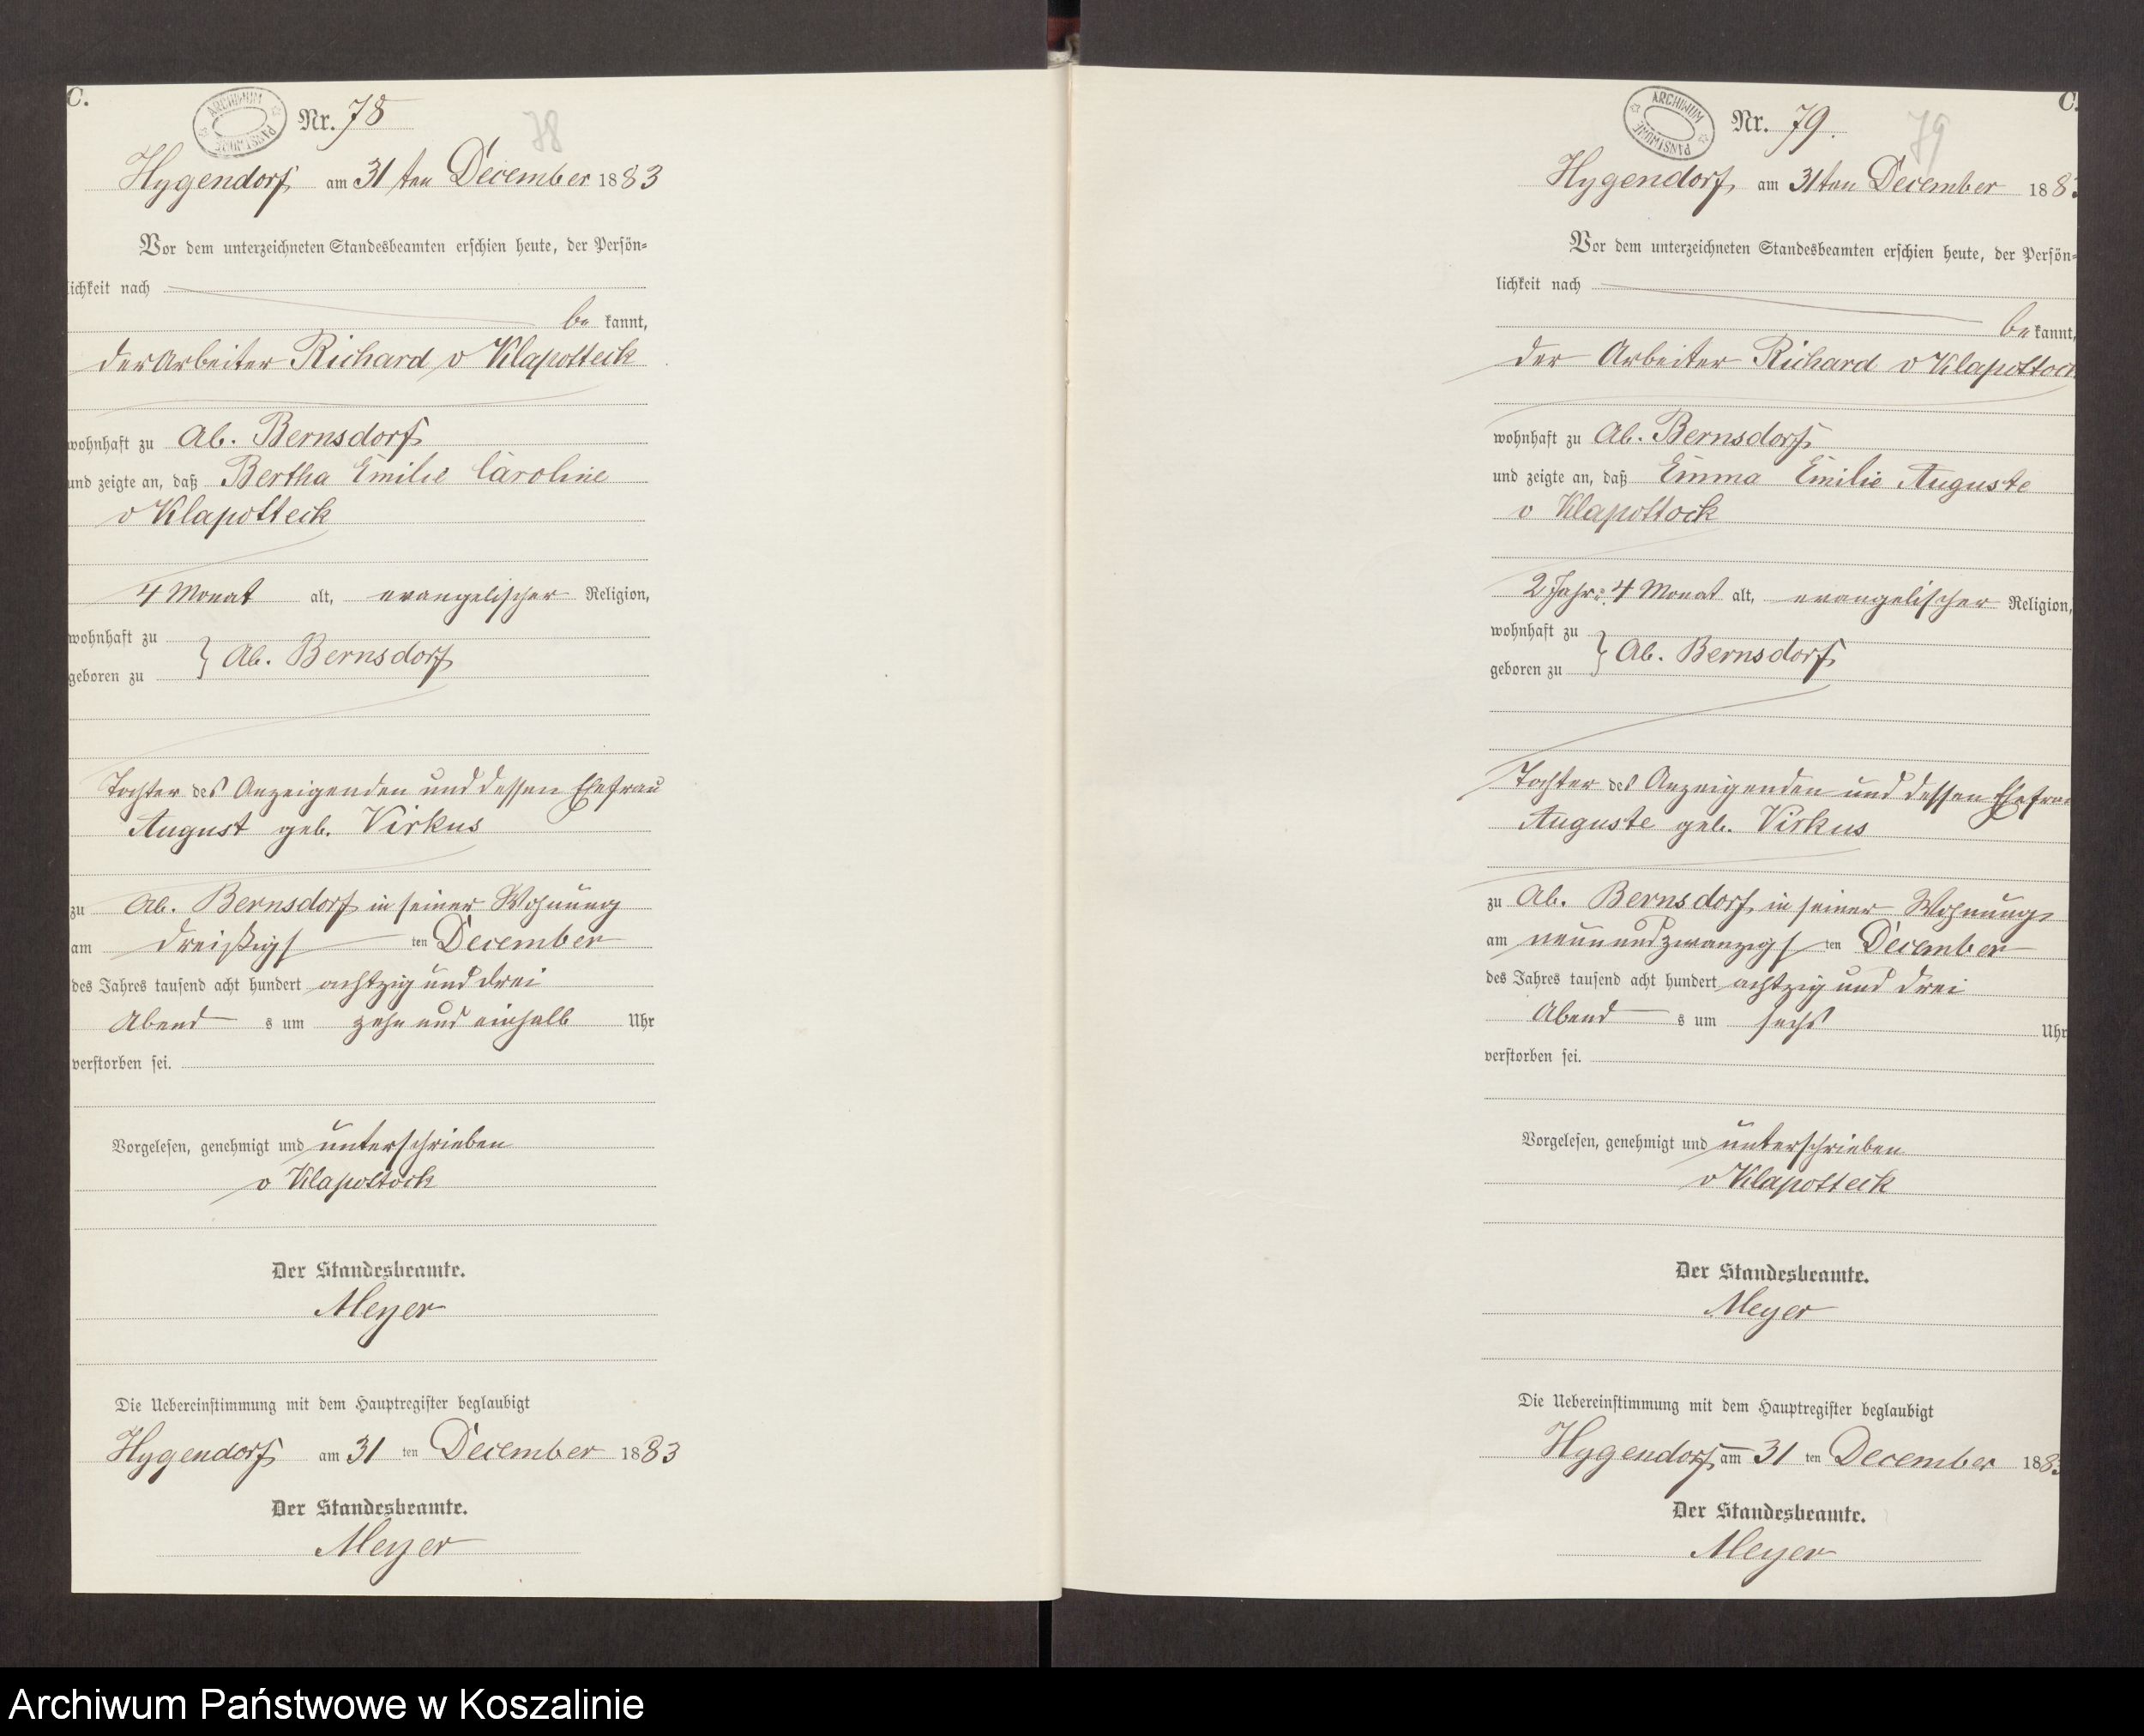 C.
ARCHIWUM PAŃSTWOWE
Nr. 78
78
Hygendorf am 31 ten December 1883
Vor dem unterzeichneten Standesbeamten erschien heute, der Persön-
lichkeit nach
be kannt,
der Arbeiter Richard v Klapotteck
wohnhaft zu Ab. Bernsdorf
und zeigte an, daß Bertha Emilie Caroline
v Klapotteck
4 Monat alt, evangelischer Religion,
wohnhaft zu
geboren zu } Ab. Bernsdorf
Tochter des Anzeigenden und dessen Ehefrau
August geb. Virkus
zu Ab. Bernsdorf in seiner Wohnung
am dreißigs ten December
des Jahres tausend acht hundert achtzig und drei
Abend s um zehn und einhalb Uhr
verstorben sei.
Vorgelesen, genehmigt und unterschrieben
v Klapottock
Der Standesbeamte.
Meyer
Die Uebereinstimmung mit dem Hauptregister beglaubigt
Hygendorf am 31 ten December 1883
Der Standesbeamte.
Meyer
C.
ARCHIWUM PAŃSTWOWE
Nr. 79.
79
Hygendorf am 31ten December 188
Vor dem unterzeichneten Standesbeamten erschien heute, der Persön-
lichkeit nach
be kannt,
der Arbeiter Richard v Klapottock
wohnhaft zu Ab. Bernsdorf
und zeigte an, daß Emma Emilie Auguste
v Klapottock
2 Jahr: 4 Monat alt, evangelischer Religion,
wohnhaft zu
geboren zu } Ab. Bernsdorf
Tochter des Anzeigenden und dessen Ehefrau
Auguste geb. Virkus
zu Ab. Bernsdorf in seiner Wohnung
am neunundzwanzigs ten December
des Jahres tausend acht hundert achtzig und drei
Abend s um sechs Uhr
verstorben sei.
Vorgelesen, genehmigt und unterschrieben
v Klapotteck
Der Standesbeamte.
Meyer
Die Uebereinstimmung mit dem Hauptregister beglaubigt
Hygendorf am 31 ten December 188
Der Standesbeamte.
Meyer
Archiwum Państwowe w Koszalinie